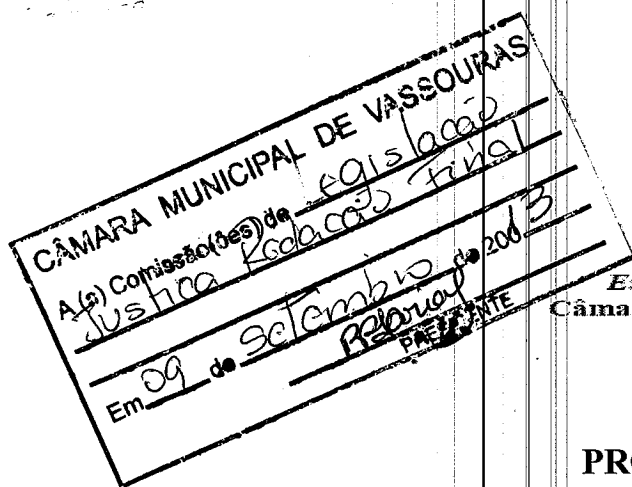 CÂMARA MUNICIPAL DE VASSOURAS
A(s) Comissão(ões) de Legislação
Justiça Redação Final
Em 09 de Setembro de 2013
PRESIDENTE
Es
Câma
PRO